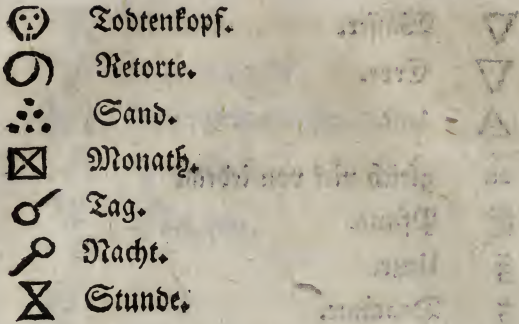 Todtenkopf.
Retorte.
Sand.
Monath.
Tag.
Nacht.
Stunde.